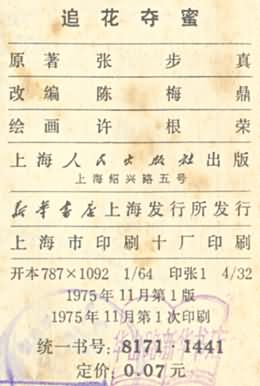 追花夺蜜
原著张步真
改编陈梅鼎
绘画许根荣
上海人民出版社出版
上海绍兴路五号
新华书店上海发行所发行
上海市印刷十厂印刷
开本787×1092 1/64 印张1 4/32
1975年11月第1版
1975年11月第1次印刷
统一书号: 8171·1441
定价: 0.07元